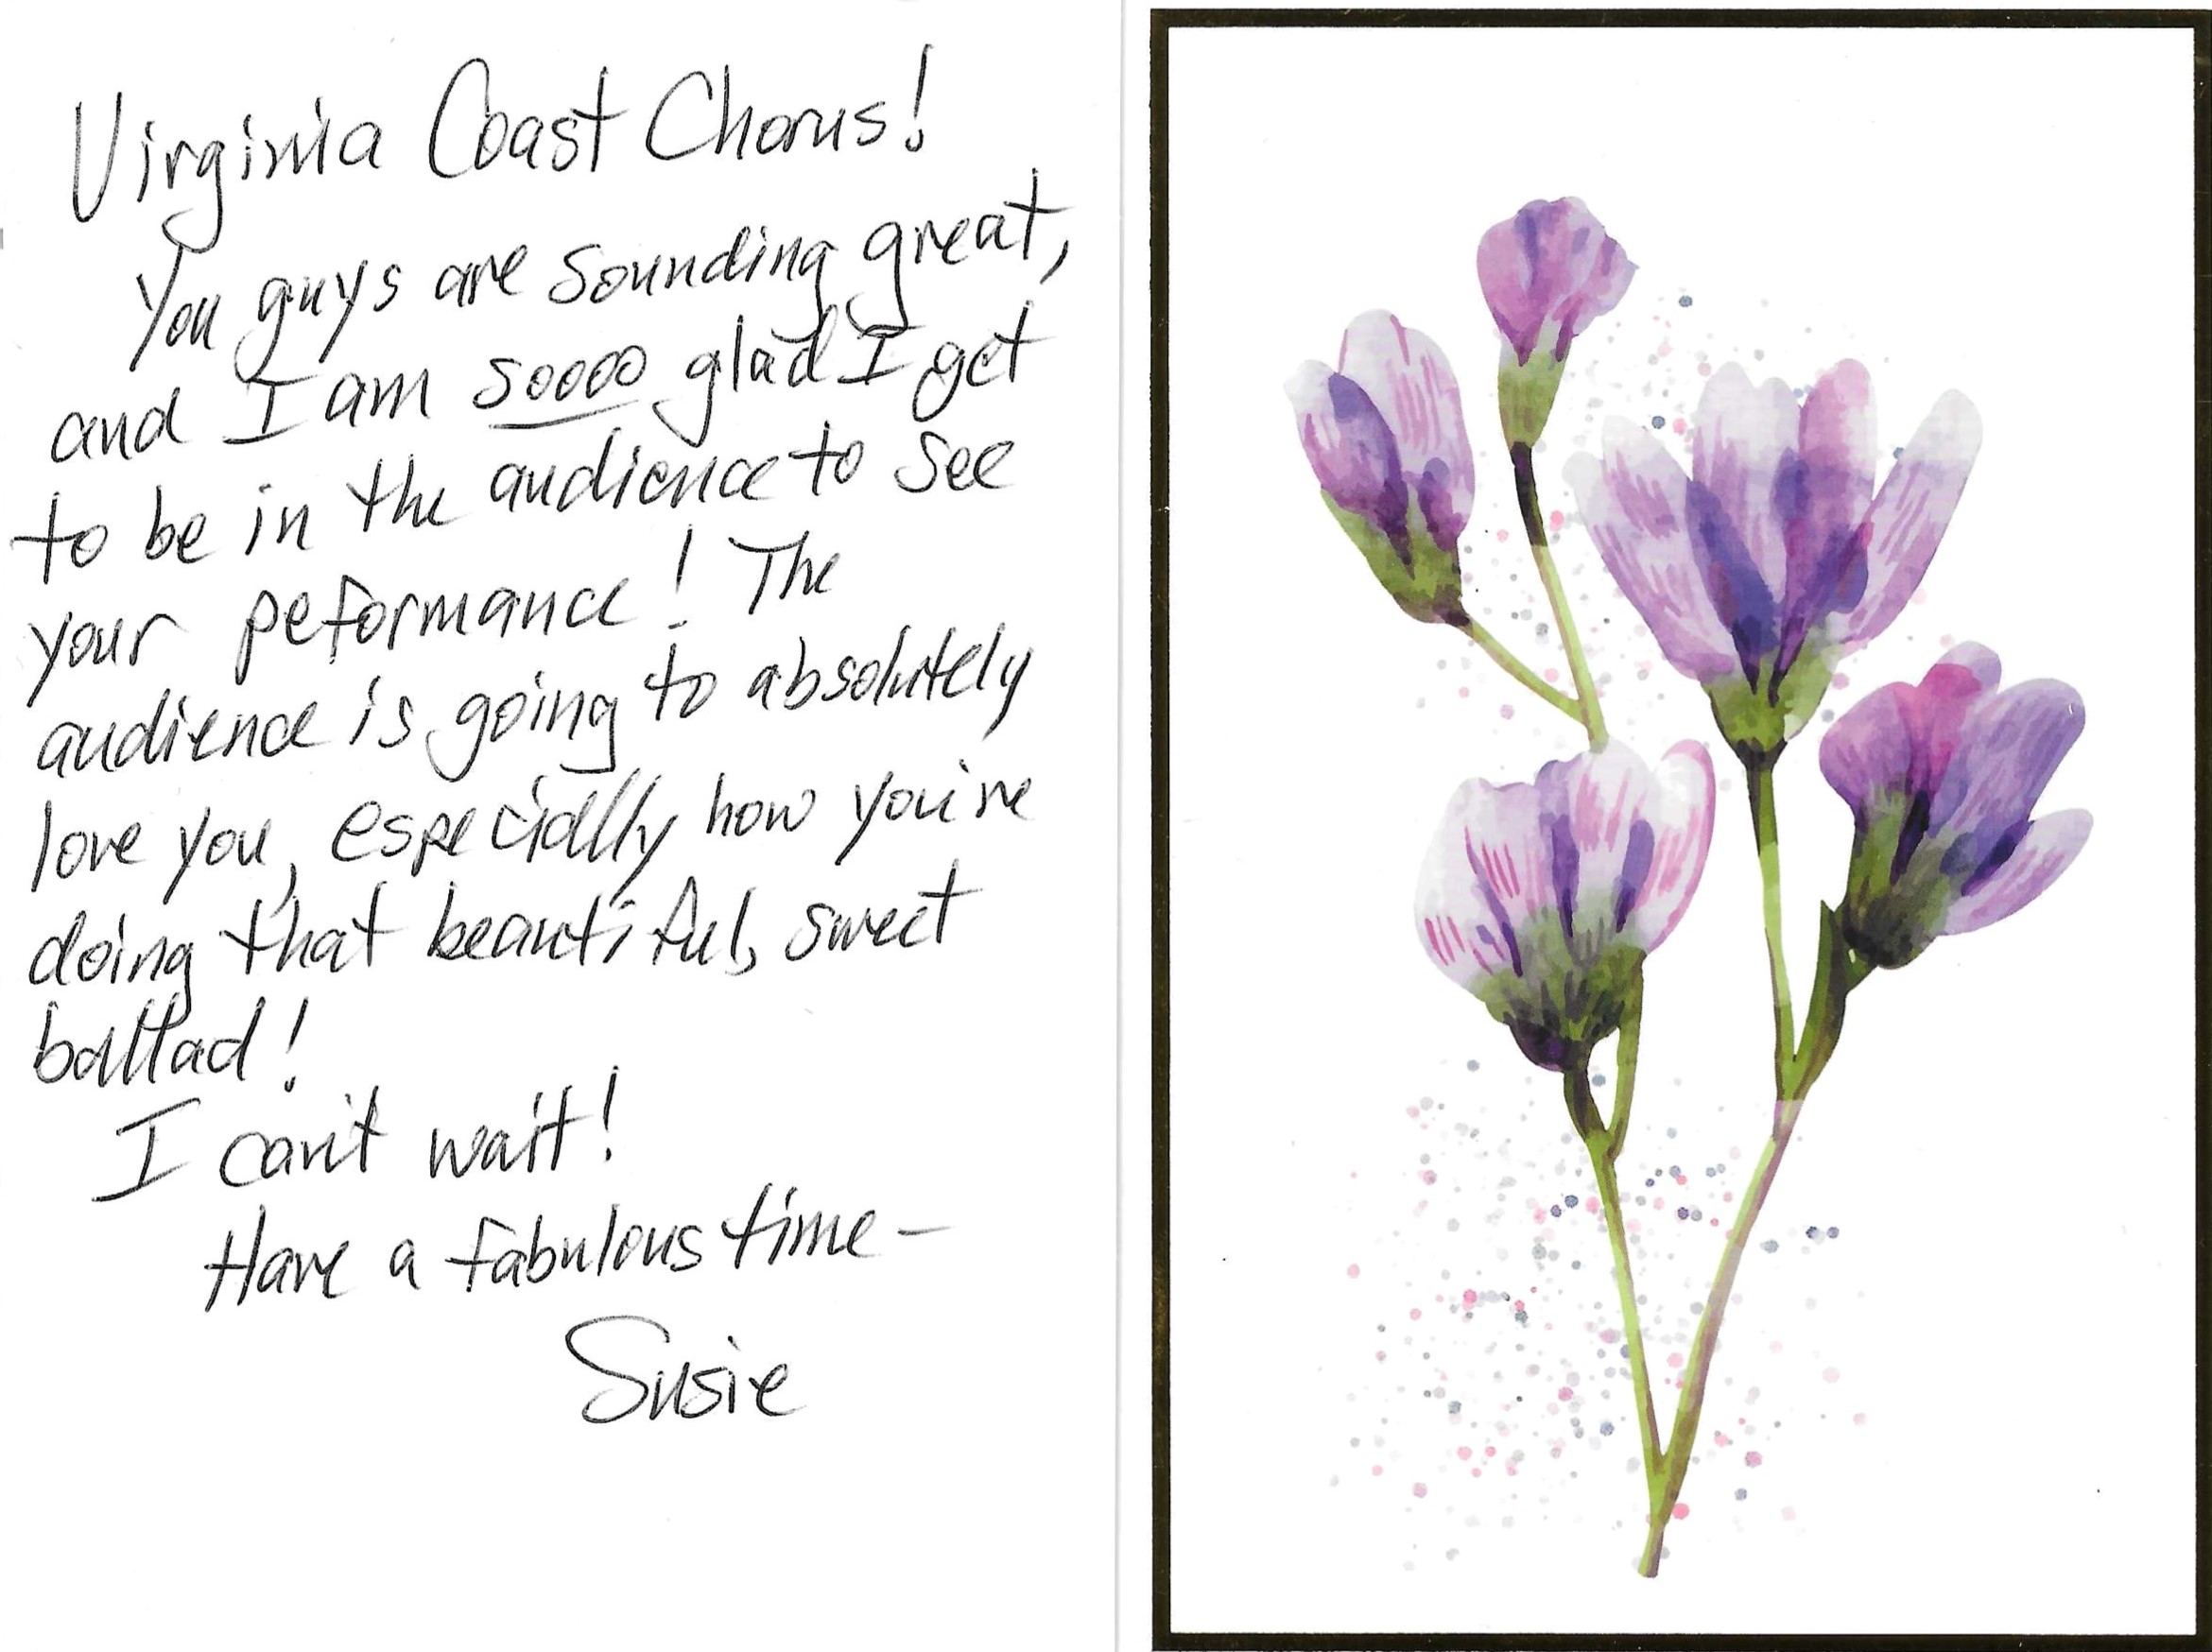 Virginia Coast Chorus!
You guys are sounding great,
and I am soooo glad I get
to be in the audience to see
your peformance! The
audience is going to absolutely
love you, especially how you're
doing that beautiful, sweet
ballad!
I can't wait!
Have a fabulous time—
Susie